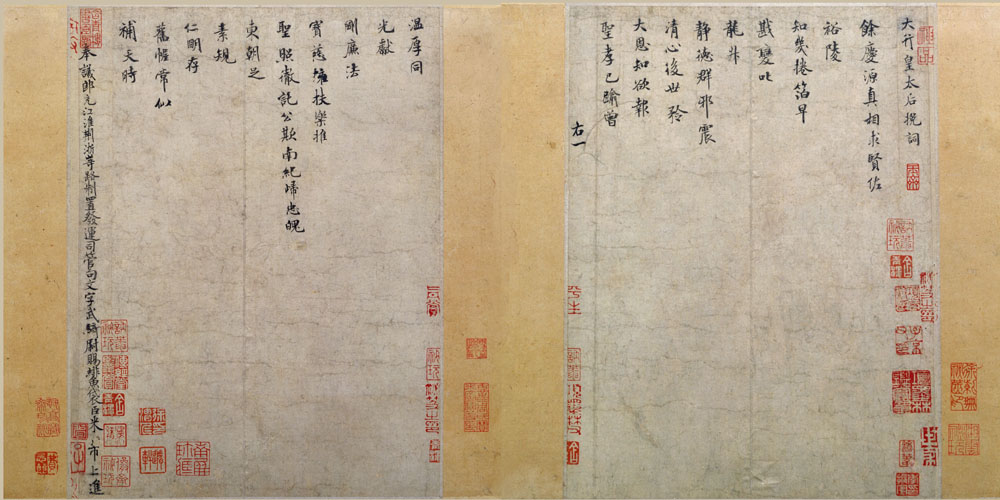 大行皇太后挽詞
餘慶源真相求賢佐
裕陵
知幾捲箔早
戡變叱
龍升
靜德群邪震
清心後世矜
大恩知欲報
聖孝已踰曾
右一
溫厚同
光獻
剛廉法
寶慈擁扶樂推
聖照徹託公欺南紀歸忠魄
東朝乏
素規
仁明存
舊幄常似
補天時
奉議郎充江淮荊浙等路制置發運司管勾文字武騎尉賜緋魚袋臣米芾上進